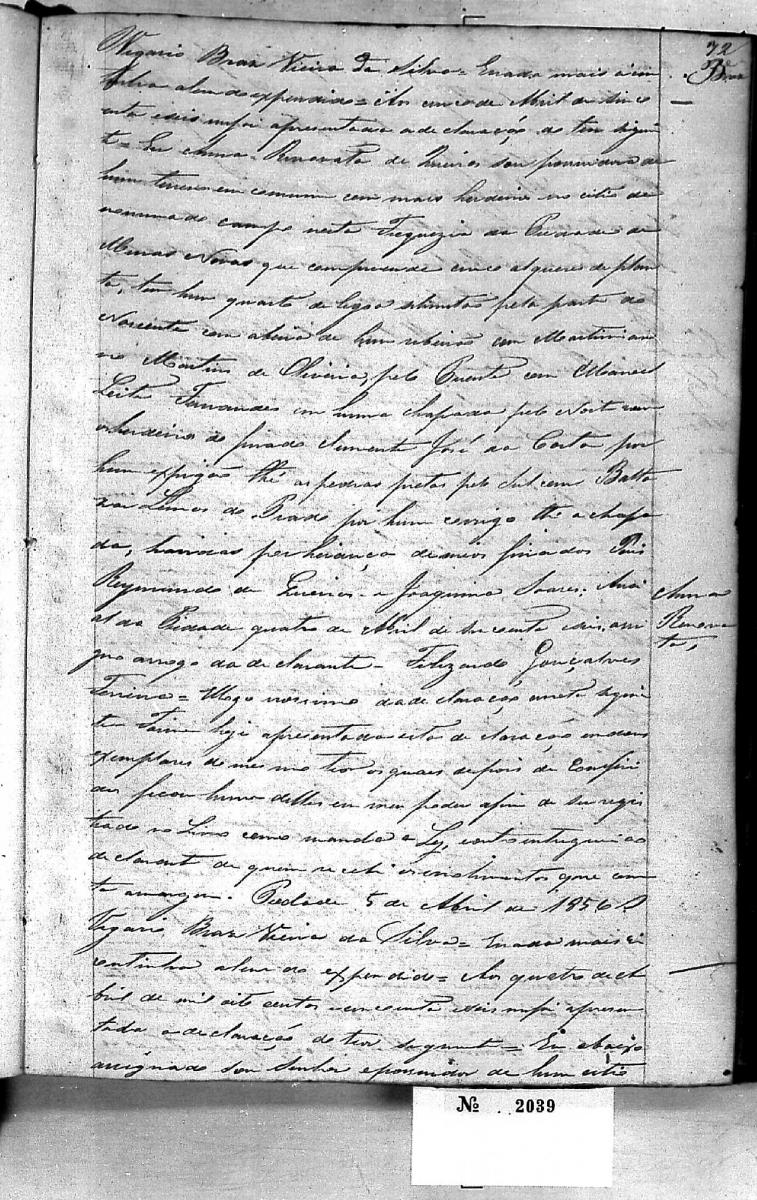 32
Braz
Vigario Braz Vieira da Silva = Enada mais con
tinha alem do expendido = Aos cinco de Abril de sinco
enta e seis me foi apresentada a declaração do teor seguin
te = Eu Anna Renovata de Queiros sou possuidora de
hum terreno em comum com mais herdeiros no citio de
nominado campo nesta Freguezia da Piedade de
Minas Novas que comprehende cinco alqueres de plan
ta, tem hum quarto de legoa e limitas pela parte do
Nascente com abeira de hum ribeirão com Martinian
no Martins de Oliveira, pelo Puente com Manoel
Leite Fernandes em huma chapada pelo Nort com
o herdeiro do finado Clemente José da Costa por
hum espigão thé as pedras pretas pelo Sul com Baltha
zar Lemos do Prado por hum corrigo thé a chapa
da, havidas por herança de meos finados Pais
Reymundo de Queiros e Joaquina Soares. Arai
al da Piedade quatro de Abril de sincoenta e seis, assi
gno arrogo da declarante = Felizardo Gonçalves
Ferreira = Logo no cimo da declaração a nota seguin
te Foime hoje apresentada esta declaração em dous
exemplares do mesmo teor os quaes depois de Conferi
dos ficou hum delles em meu poder afim de ser regis
trado no Livro como manda a Ley, e outro entreguei ao
declarante de quem recebi os emolumentos que cons
ta a margem. Piedade 5 de Abril de 1856 O
Vigario Braz Vieira da Silva = Enada mais se
continha alem do expendido = Aos quatro de A
bril de mil oito centos e cincoenta e seis me foi apresen
tada a declaração do teor seguinte = Eu abaixo
assignado sou Senhor e possuidor de hum citio
Anna
Renova
ta,
Nº 2039